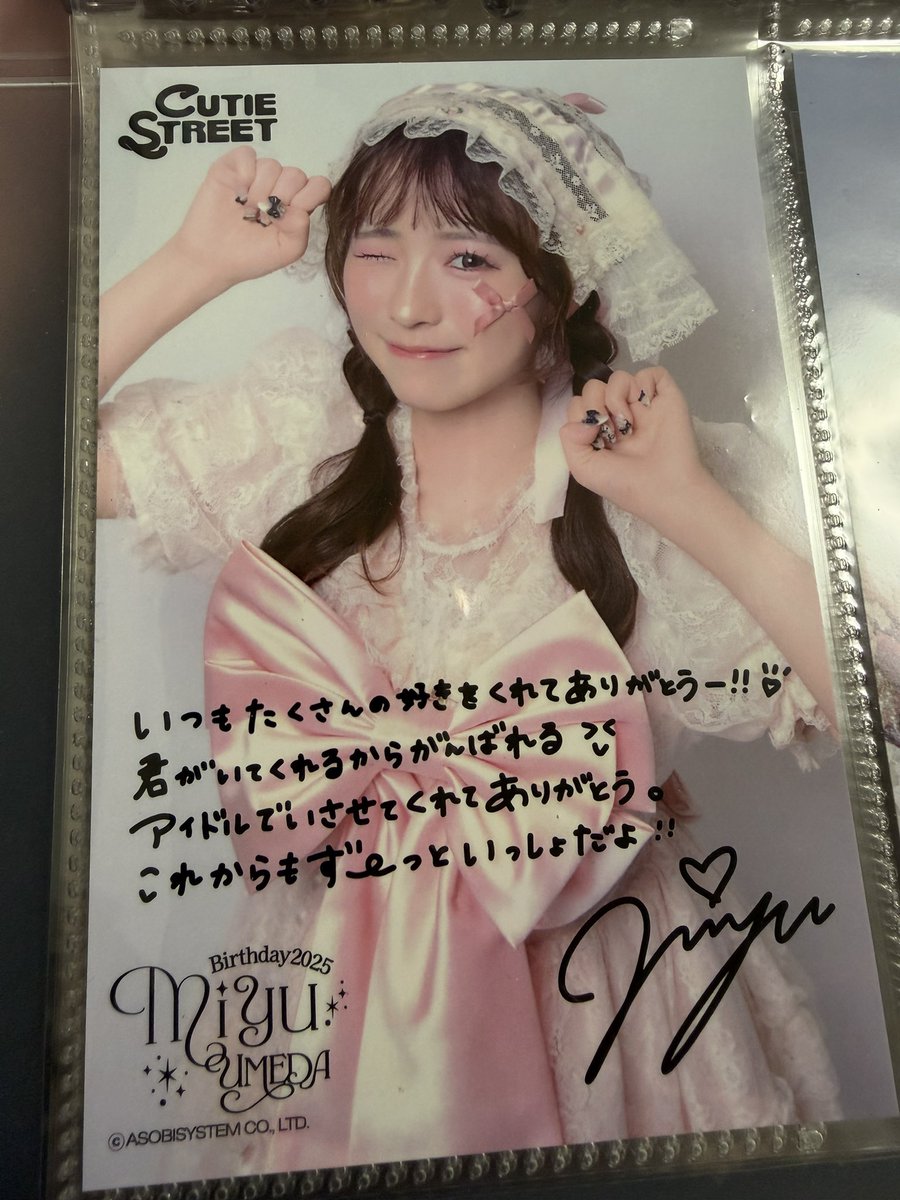 CUTIE
STREET
いつもたくさんの好きをくれてありがとうー!!
君がいてくれるからがんばれる
アイドルでいさせてくれてありがとう。
これからもず~っといっしょだよ!!
Miyu
Birthday2025
MiYU
UMEDA
©ASOBISYSTEM CO., LTD.